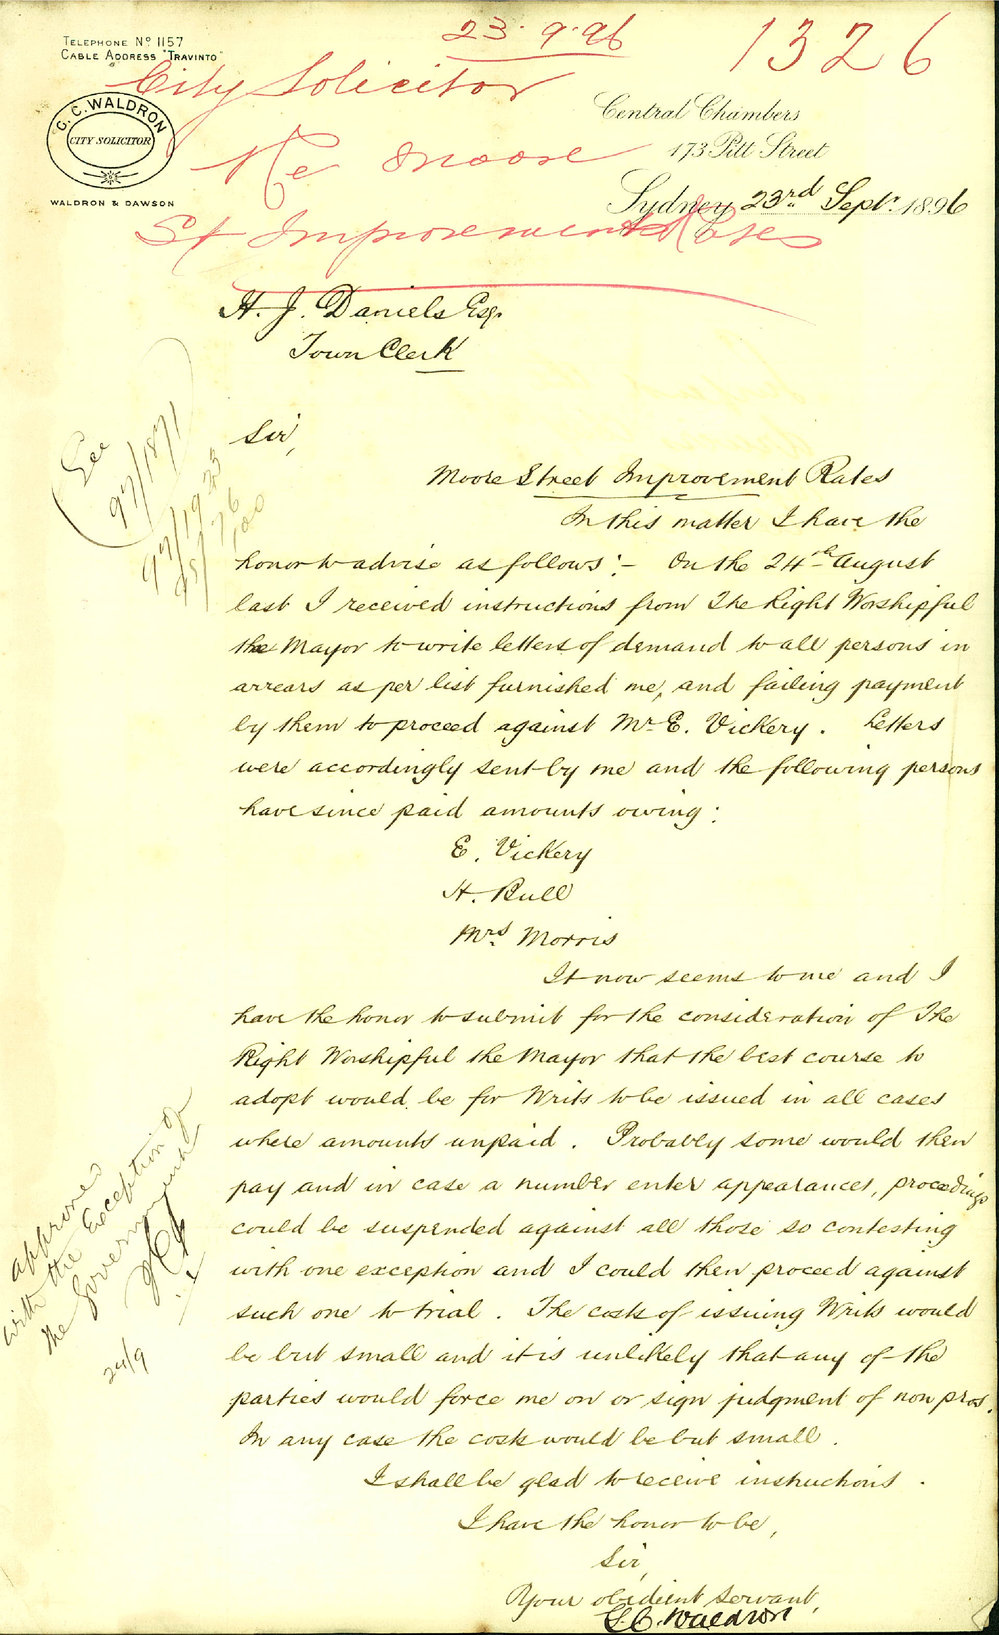 23.9.96
1326
TELEPHONE No 1157
CABLE ADDRESS "TRAVINTO"
City Solicitor
G. C. WALDRON
CITY SOLICITOR
WALDRON & DAWSON
Central Chambers
173 Pitt Street
Re Moore
Sydney 23rd Septr. 1896
St Improvement Rates
H. J. Daniels Esq.
Town Clerk
Sir,
See
97/1871
Moore Street Improvement Rates
In this matter I have the
honor to advise as follows:- On the 24th August
last I received instructions from The Right Worshipful
the Mayor to write letters of demand to all persons in
arrears as per list furnished me, and failing payment
by them to proceed against Mr. E. Vickery. Letters
were accordingly sent by me and the following persons
have since paid amounts owing:
E. Vickery
H. Bull
Mrs. Morris
It now seems to me and I
have the honor to submit for the consideration of The
Right Worshipful the Mayor that the best course to
adopt would be for Writs to be issued in all cases
where amounts unpaid. Probably some would then
pay and in case a number enter appearances, proceedings
could be suspended against all those so contesting
with one exception and I could then proceed against
such one to trial. The costs of issuing Writs would
be but small and it is unlikely that any of the
parties would force me on or sign judgment of non pros.
In any case the costs would be but small.
approved
with the Exception of
the Government
24/9
I shall be glad to receive instructions.
I have the honor to be,
Sir,
Your obedient servant,
G. C. Waldron